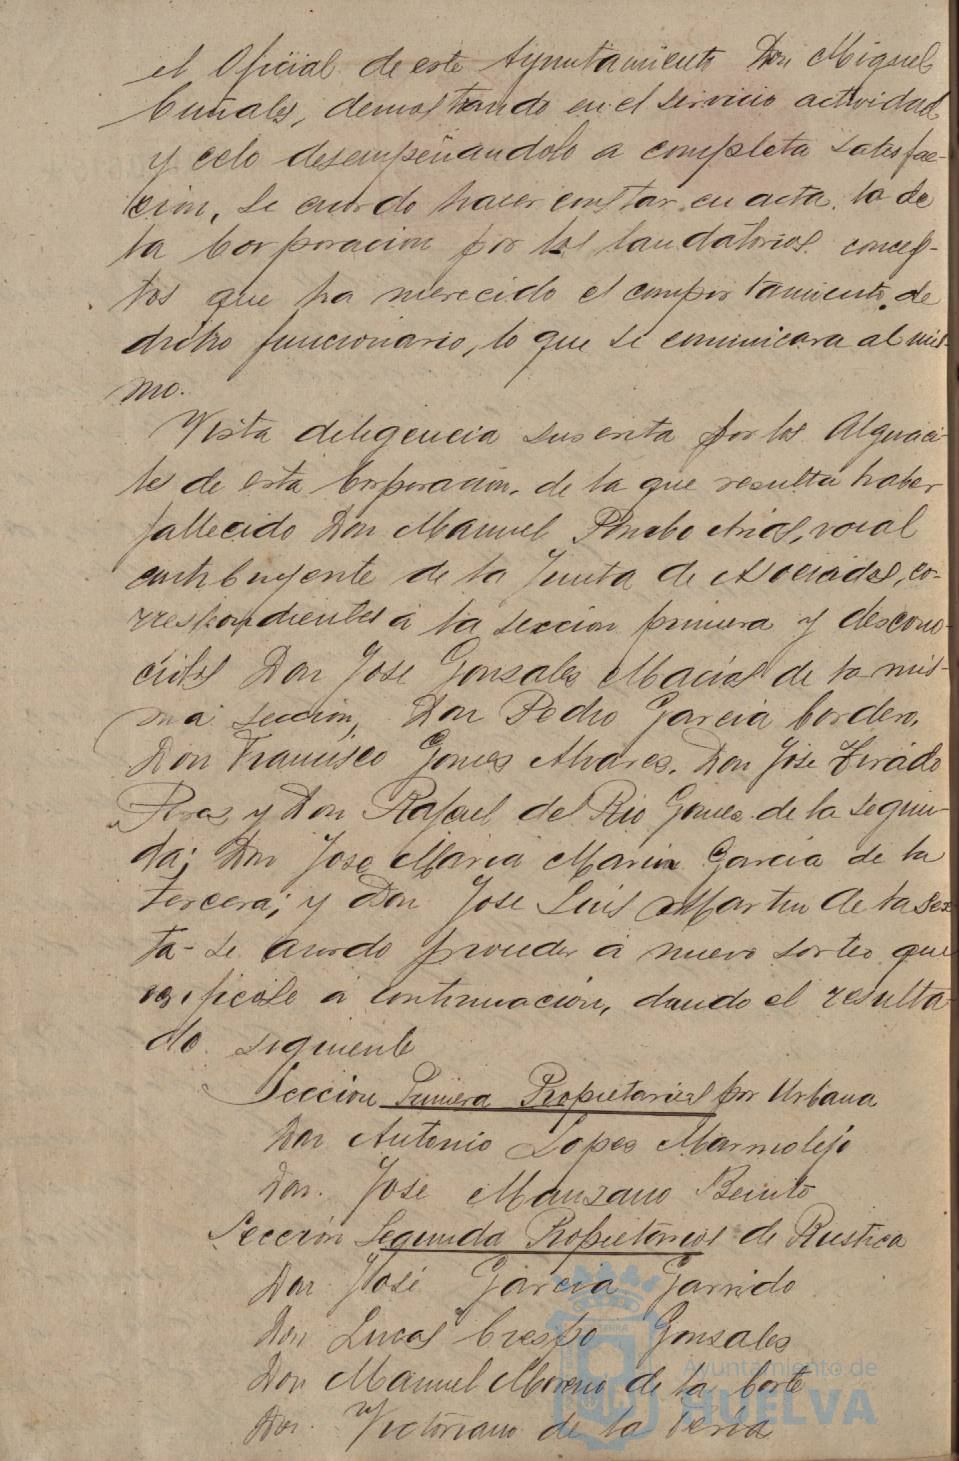 el Oficial de este Ayuntamiento Don Miguel
Cuñales, demostrando en el servicio actividad
y celo desempeñandolo a completa satisfac-
cion, se acordo hacer constar en acta, la de
la Corporacion por los laudatorios concep-
tos que ha merecido el comportamiento de
dicho funcionario, lo que se comunicara al mis-
mo.
Vista diligencia suscrita por los Alguaci-
les de esta Corporacion, de la que resulta haber
fallecido Don Manuel Arias, vocal
contribuyente de la Junta de Asociados, co-
rrespondientes a la seccion primera y descono-
cidos Don Jose Gonzales Macias de la mis-
ma seccion, Don Pedro Garcia Cordero,
Don Francisco Gomes Alvares, Don Jose Tirado
Peres y Don Rafael del Rio Gomes de la segun-
da; Don Jose Maria Marin Garcia de la
tercera; y Don Jose Luis Martin de la sex-
ta- se acordo proceder a nuevo sorteo que
a continuacion, dando el resulta-
do siguiente
Seccion Primera Propietarios por Urbana
Don Antonio Lopes Marmolejo
Don. José Manzano Benito
Sección Segunda Propietarios de Rustica
Don José Garcia Garrido
Don Lucas Crespo Gonzales
Don Manuel Moreno de la Corte
Don Victoriano de la
Ayuntamiento de
HUELVA